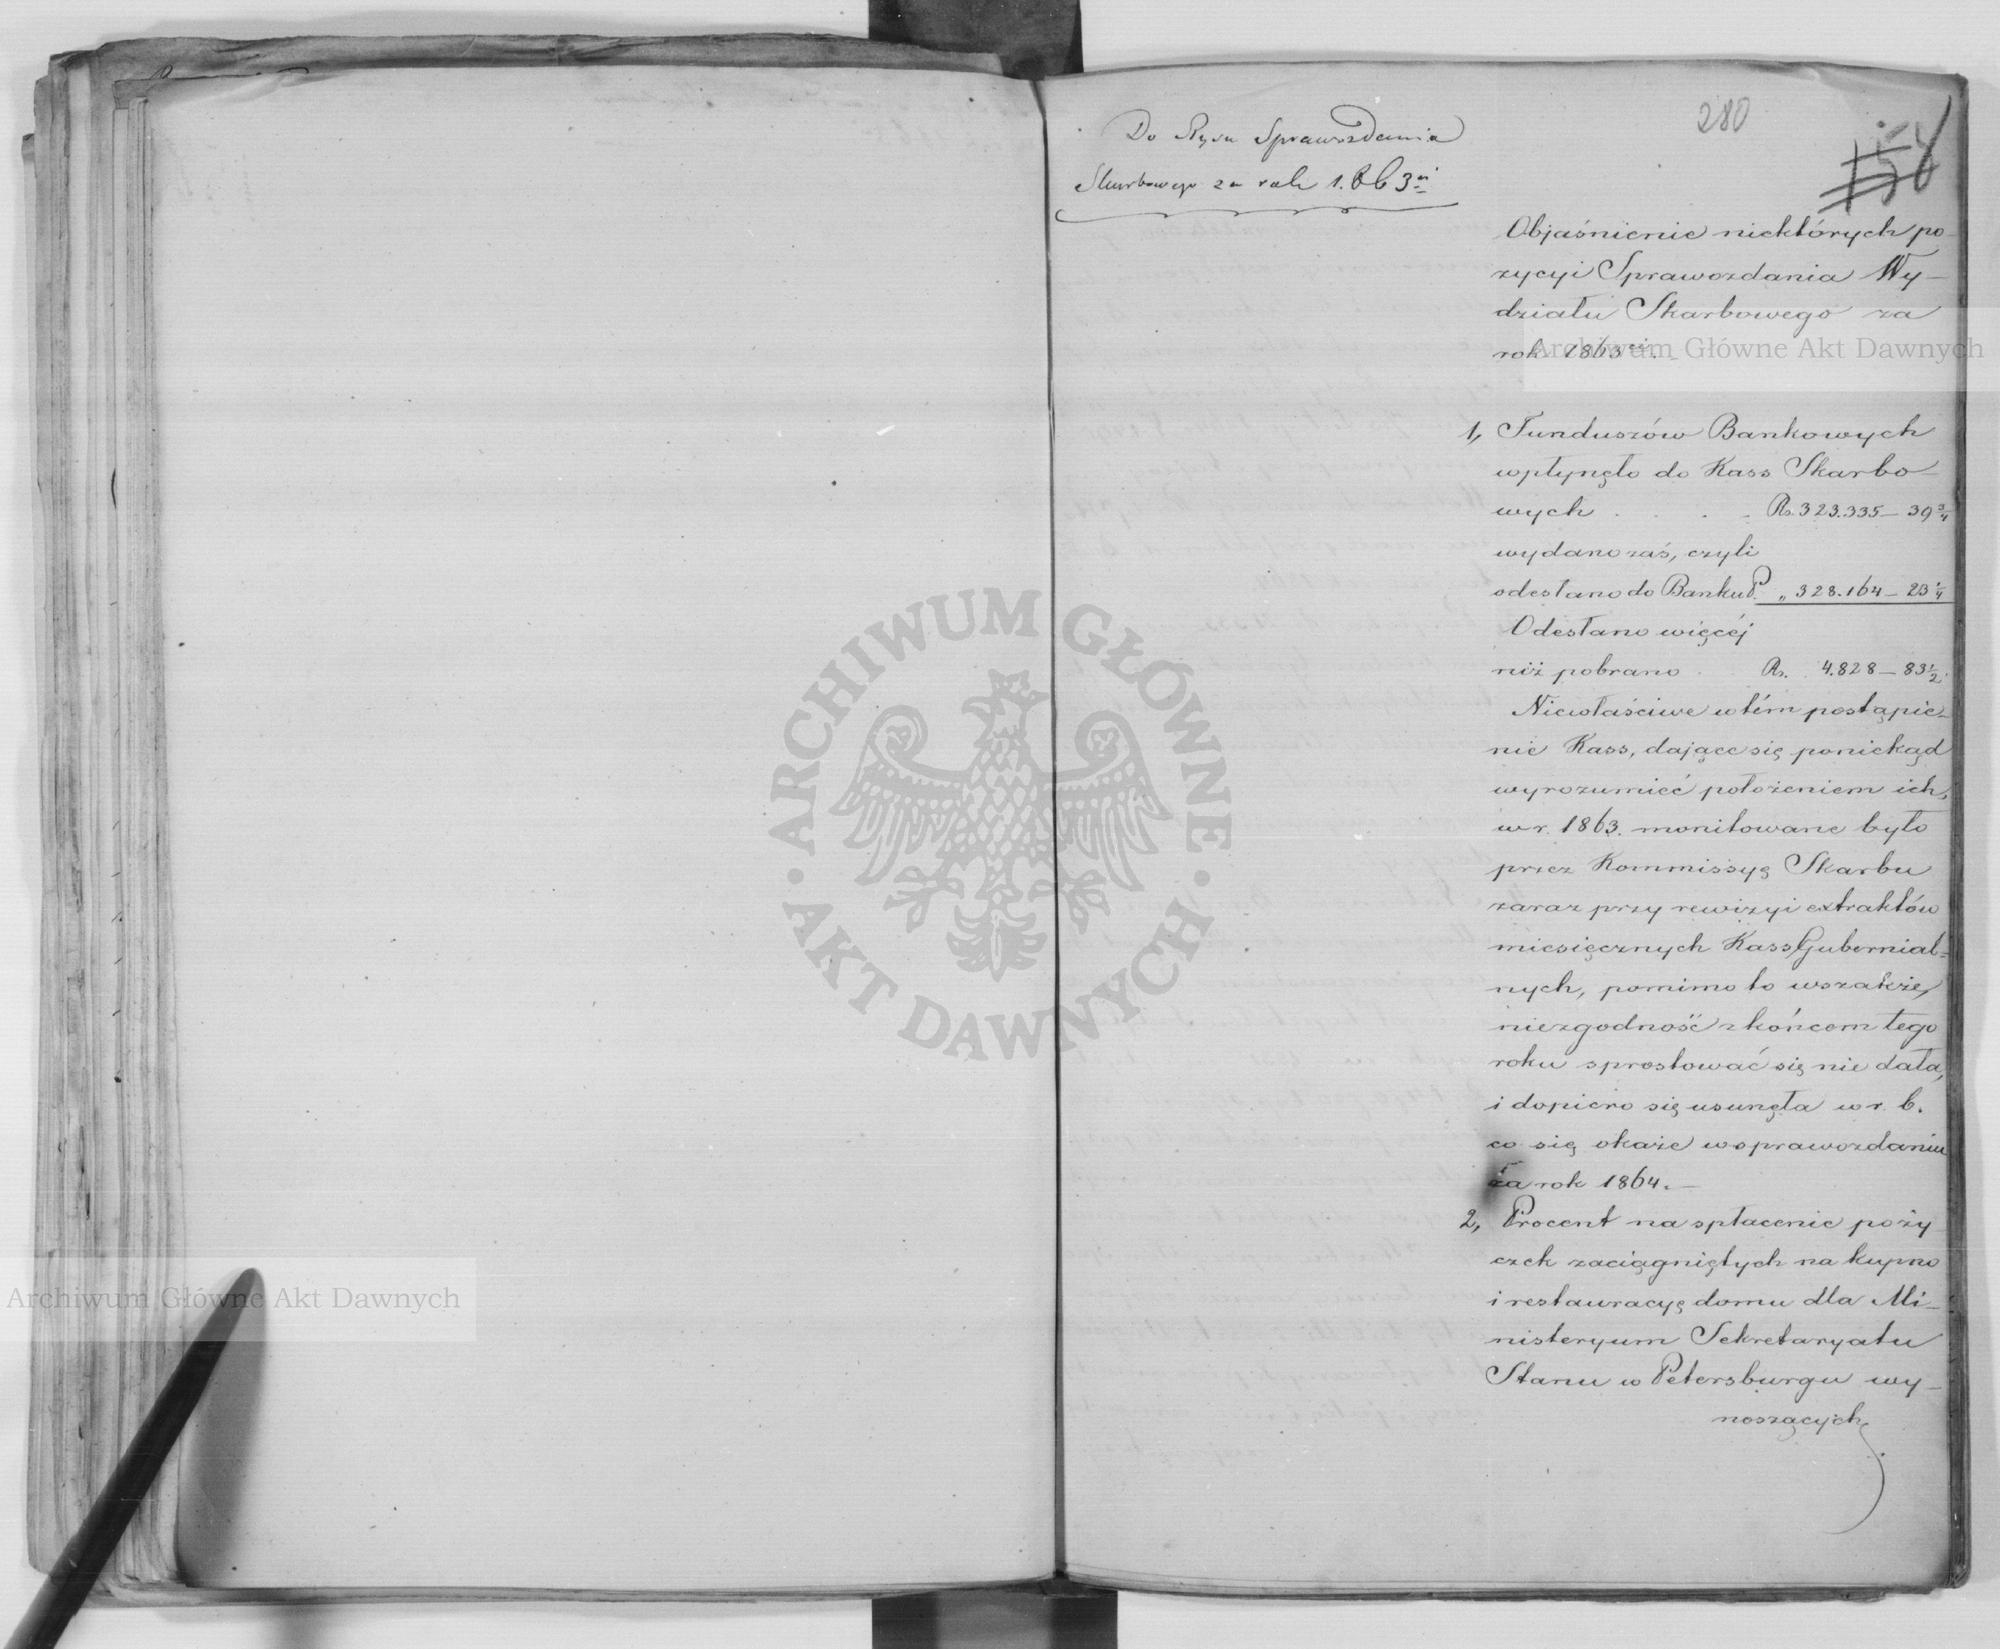 280
Do Rysu Sprawozdania
Skarbowego za rok 1.863
Objaśnienie niektórych po-
zycyi Sprawozdania Wy-
działu Skarbowego za
rok 1863
1, Funduszów Bankowych
wpłynęło do Kass Skarbo-
wych . . . . Rs. 323.335 – 39 3/4
wydano zaś, czyli
odesłano do Banku P. „ 328.164 – 23 1/4
Odesłano więcéj
niż pobrano . Rs. 4.828 – 83 1/2
Niewłaściwe w tém postąpie-
nie Kass, dające się poniekąd
wyrozumieć położeniem ich,
w r. 1863. monitowane było
przez Kommissyę Skarbu
zaraz przy rewizyi extraktów
miesięcznych Kass Gubernial-
nych, pomimo to wszakże,
niezgodność z końcem tego
roku sprostować się nie dała,
i dopiero się usunęła w r. b.
co się okaże w sprawozdaniu
za rok 1864. –
2, Procent na spłacenie poży
czek zaciągniętych na kupno
i restauracyę domu dla Mi-
nisteryum Sekretaryatu
Stanu w Petersburgu wy-
noszących
Archiwum Główne Akt Dawnych
ARCHIWUM GŁÓWNE
AKT DAWNYCH
Archiwum Główne Akt Dawnych